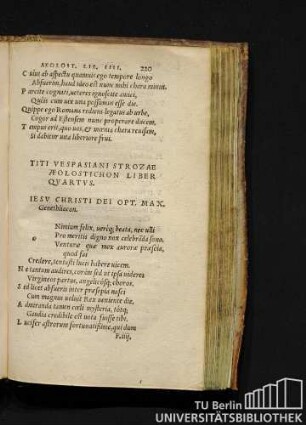 AEOLOST. LIB. IIII. 220
C uius ab aspectu quamuis ego tempore longo
Abfuerim, haud ideo est nunc mihi chara minus.
P arcite cognati, ueteres ignoscite amici,
Quòd cum uix una possim esse die.
Quippe ego Romana rediens legatus ab urbe,
Cogor ad Estensem nunc properare ducem.
T empus erit, quo uos, & uxorem chara reuisam,
Si dabitur uita liberiore frui.
TITI VESPASIANI STROZAE
AEOLOSTICHON LIBER
QVARTVS.
IESV CHRISTI DEI OPT. MAX.
Genethliacon.
Nimium felix, uereq; beata, nec ulli
Pro meritis digno nox celebrata sono.
Venturæ quæ nox auroræ præscia,
qualis
Credere, tenuisti luci habere uicem.
N e tantum audires, coram sed ut ipsa uideres
Virgineos partus, angelicosq; choros.
S cilicet abfueris inter præsepia nosti
Cum magnus uoluit Rex uenisse die.
A dmiranda tamen cœli mysteria, totq;
Gaudia credibile est nota fuisse tibi.
L ucifer astrorum fortunatissime, qui dum
Pallij,
TU Berlin
UNIVERSITÄTSBIBLIOTHEK